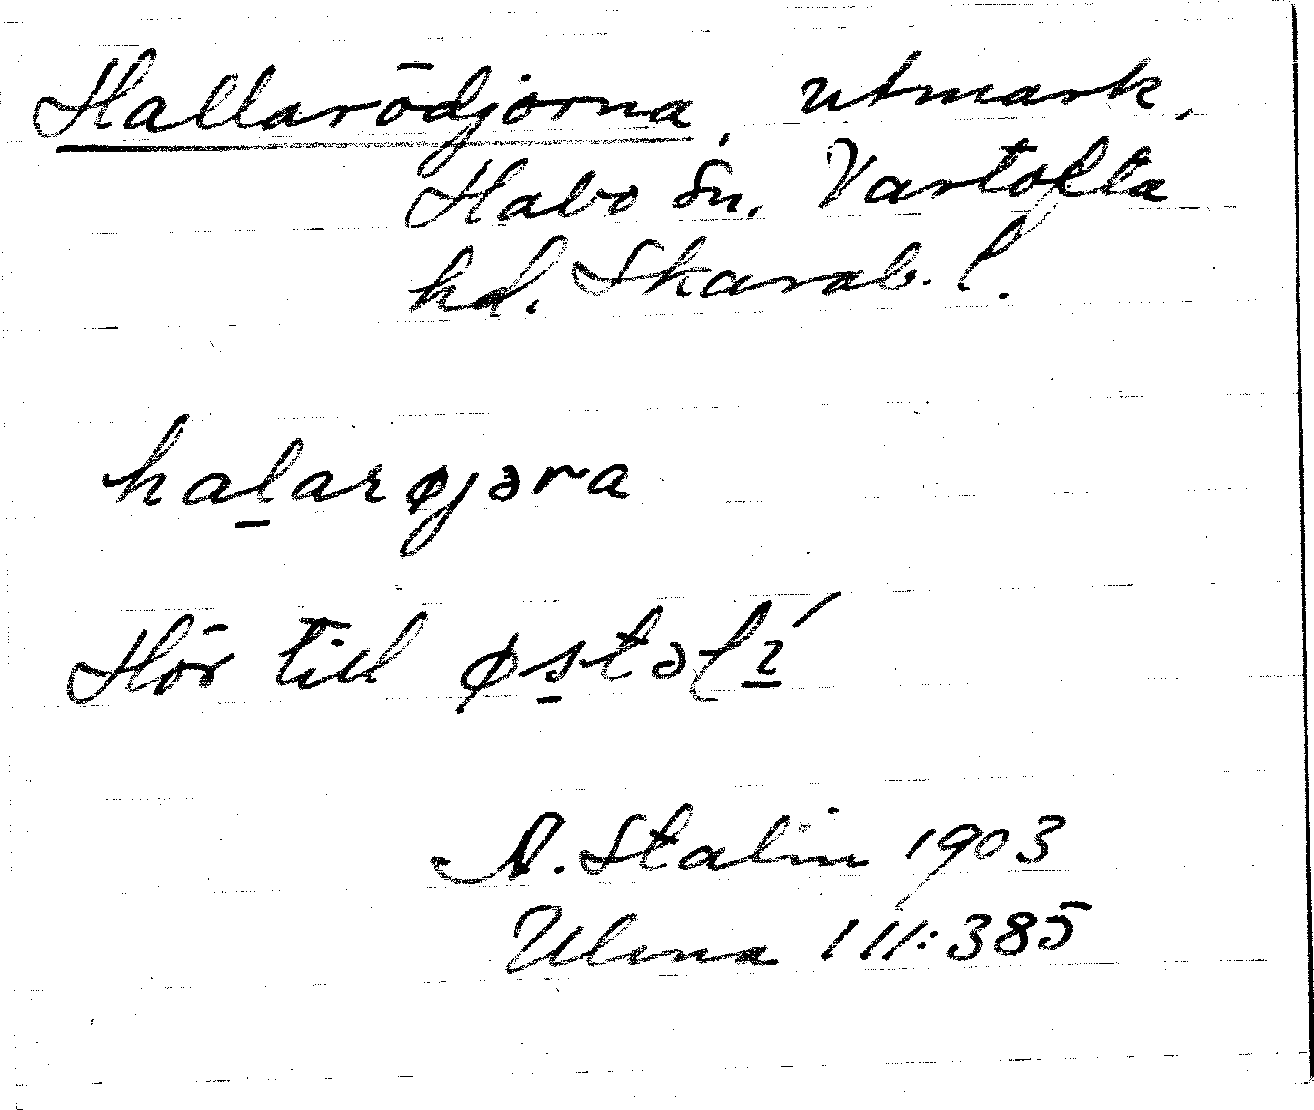 Hallarödjorna, utmark,
Habo sn. Vartofta
hd. Skarab. l.
ha̱larøjəra
Hör till øs̱təlí̱
A. Stalin 1903
Ulma 111:385